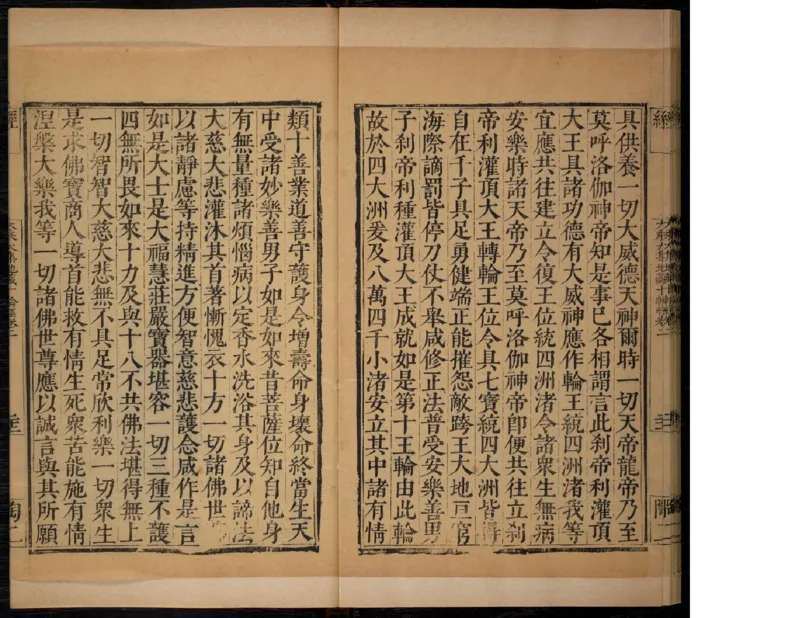 具供養一切大威德天神爾時一切天帝龍帝乃至
莫呼洛伽神帝知是事已各相謂言此刹帝利灌頂
大王具諸功德有大威神應作輪王統四洲渚我等
宜應共往建立令復王位統四洲渚令諸衆生無病
安樂時諸天帝乃至莫呼洛伽神帝即便共往立刹
帝利灌頂大王轉輪王位令具七寶統四大洲皆得
自在千子具足勇健端正能摧怨敵跨王大地亘窮
海際謫罰皆停刀仗不舉咸修正法普受安樂善男
子刹帝利種灌頂大王成就如是第十王輪由此輪
故於四大洲爰及八萬四千小渚安立其中諸有情
類十善業道善守護身令增壽命身壞命終當生天
中受諸妙樂善男子如是如來昔菩薩位知自他身
有無量種諸煩惱病以定香水洗浴其身及以諦法
大慈大悲灌沐其首著慚愧衣十方一切諸佛世
以諸靜慮等持精進方便智意慈悲護念咸作是言
如是大士是大福慧莊嚴寶器堪容一切三種不護
四無所畏如來十力及與十八不共佛法堪得無上
一切智智大慈大悲無不具足常欣利樂一切衆生
是求佛寶商人導首能救有情生死衆苦能施有情
涅槃大樂我等一切諸佛世尊應以誠言與其所願
經